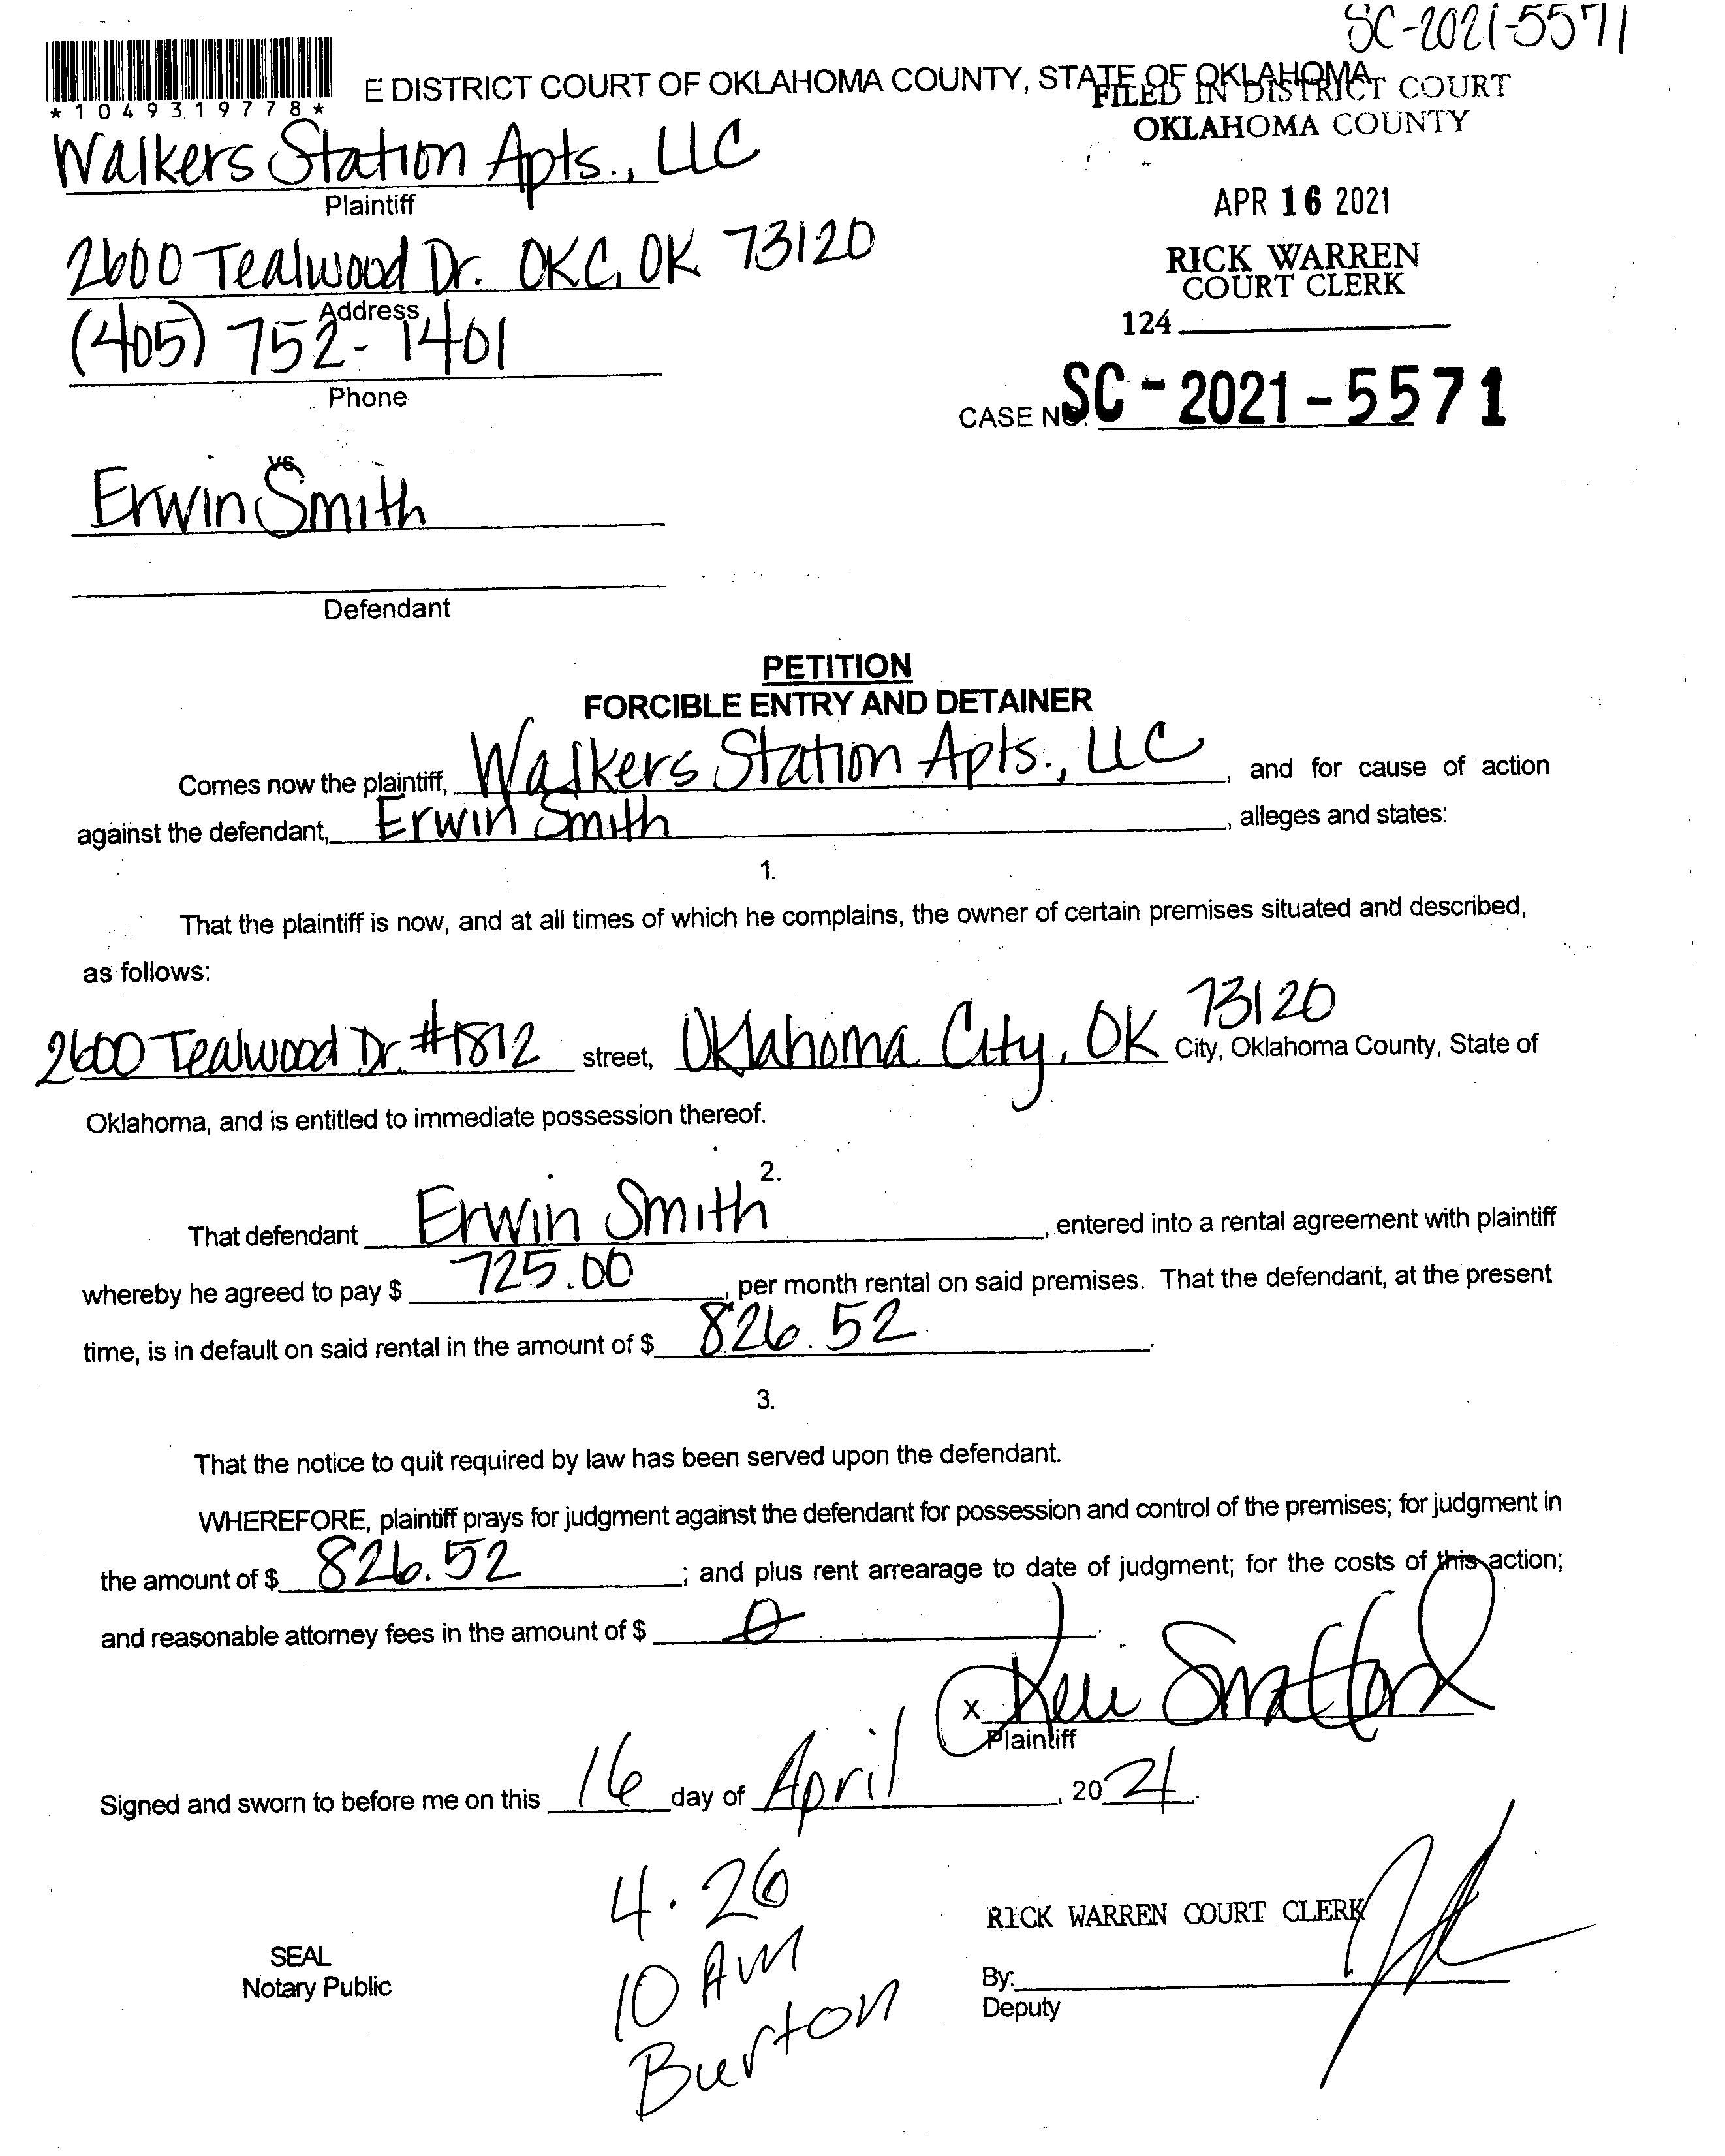 SC-2021-5571
*1049319778*
E DISTRICT COURT OF OKLAHOMA COUNTY, STATE OF OKLAHOMA
FILED IN DISTRICT COURT
OKLAHOMA COUNTY
Walkers Station Apts., LLC
Plaintiff
APR 16 2021
2600 Tealwood Dr. OKC, OK 73120
Address
RICK WARREN
COURT CLERK
(405) 752-1401
124
Phone
CASE NO. SC-2021-5571
vs.
Erwin Smith
Defendant
PETITION
FORCIBLE ENTRY AND DETAINER
Comes now the plaintiff, Walkers Station Apts., LLC, and for cause of action
against the defendant, Erwin Smith, alleges and states:
1.
That the plaintiff is now, and at all times of which he complains, the owner of certain premises situated and described,
as follows:
2600 Tealwood Dr. #1812 street, Oklahoma City, OK 73120 City, Oklahoma County, State of
Oklahoma, and is entitled to immediate possession thereof.
2.
That defendant Erwin Smith, entered into a rental agreement with plaintiff
whereby he agreed to pay $ 725.00, per month rental on said premises. That the defendant, at the present
time, is in default on said rental in the amount of $ 826.52.
3.
That the notice to quit required by law has been served upon the defendant.
WHEREFORE, plaintiff prays for judgment against the defendant for possession and control of the premises; for judgment in
the amount of $ 826.52; and plus rent arrearage to date of judgment; for the costs of this action;
and reasonable attorney fees in the amount of $ 0.
x
Plaintiff
Signed and sworn to before me on this 16 day of April, 2021.
4.26
10 AM
Burton
RICK WARREN COURT CLERK
SEAL
Notary Public
By:
Deputy